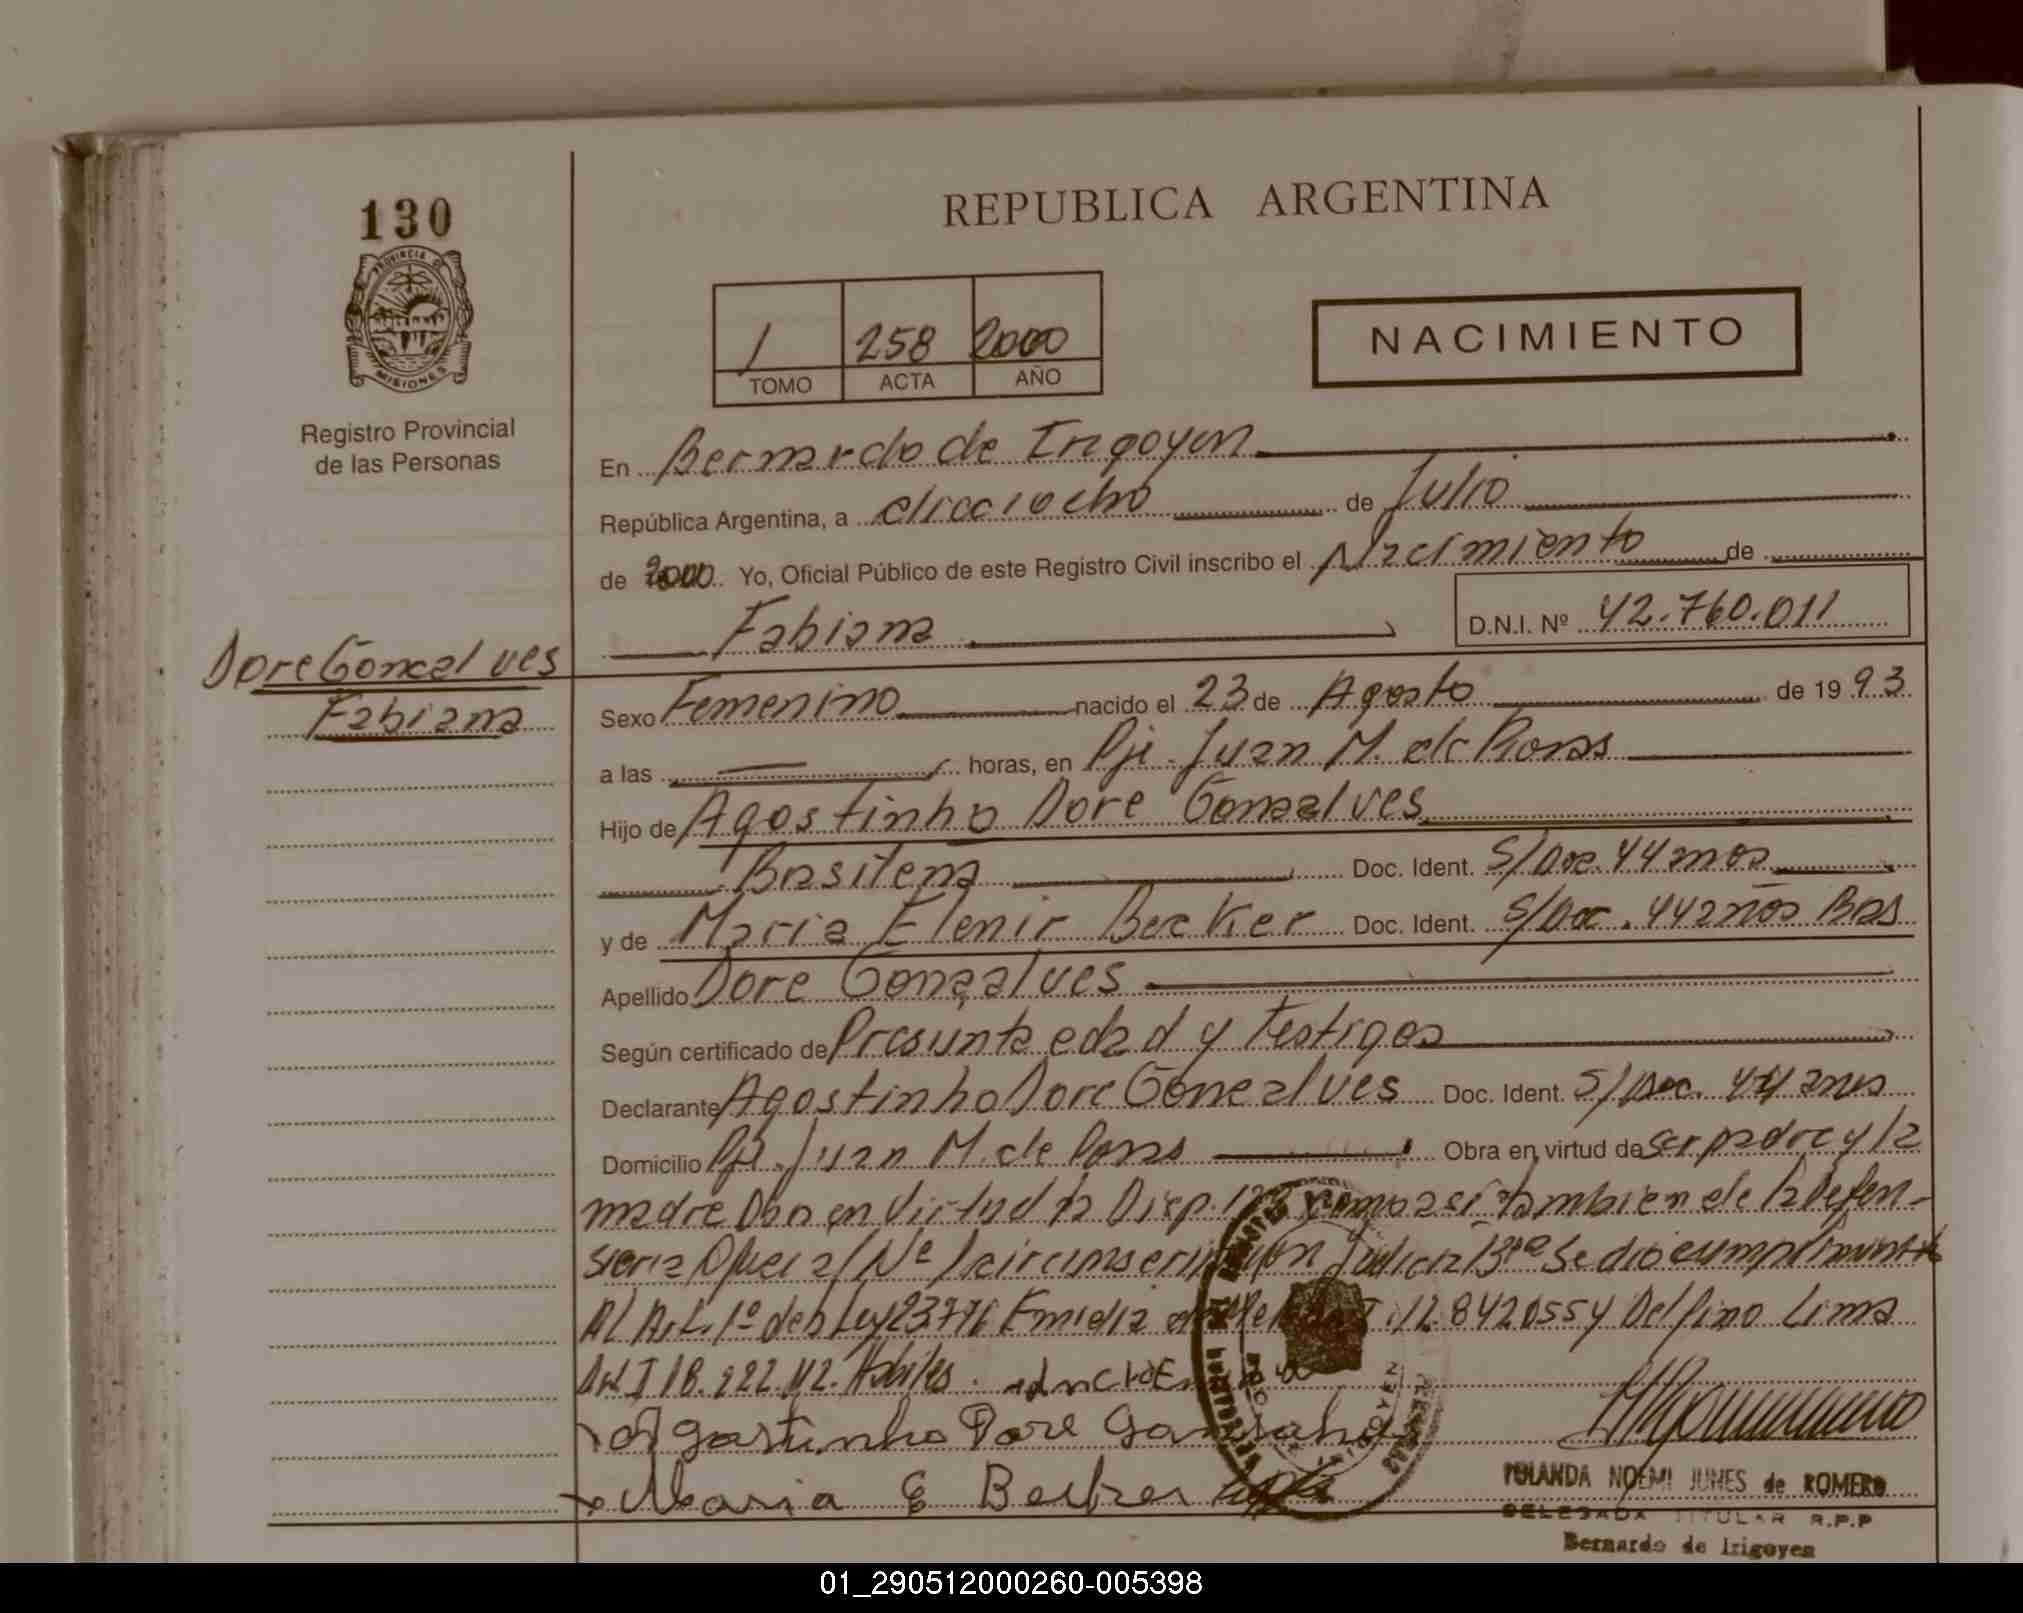 130
PROVINCIA DE
MISIONES
Registro Provincial
de las Personas
REPUBLICA ARGENTINA
1 258 2000
TOMO ACTA AÑO
NACIMIENTO
En Bernardo de Irigoyen
República Argentina, a dieciocho de Julio
de 2000 Yo, Oficial Público de este Registro Civil inscribo el Nacimiento de
Fabiana D.N.I. Nº 42.760.011
Dore Goncalves
Fabiana
Sexo Femenino nacido el 23 de Agosto de 1993
a las — horas, en Pje. Juan M. de Rosas
Hijo de Agostinho Dore Gonzalves
Brasilena Doc. Ident. S/Doc. 44 anos
y de Maria Elenir Becker Doc. Ident. S/Doc. 44 años Bras
Apellido Dore Gonçalves
Según certificado de Presunta edad y Testigos
Declarante Agostinho Dore Goncalves Doc. Ident. S/Doc. 44 anos
Domicilio Pje. Juan M. de Rosas Obra en virtud de ser padre y la
madre Obra en Virtud la Disp. como asi tambien de la Defen-
soria Oficial Nº 1 circunscripcion Judicial 3ra Se dio cumplimiento
Al Art. 1º de la Ley 23776 12.842055 y Delfino Lima
18.222.112. Habiles.
Agostinho Dore Gonsalves
Maria E Becker
YOLANDA NOEMI JUNES de ROMERO
DELEGADA TITULAR R.P.P
Bernardo de Irigoyen
01_290512000260-005398